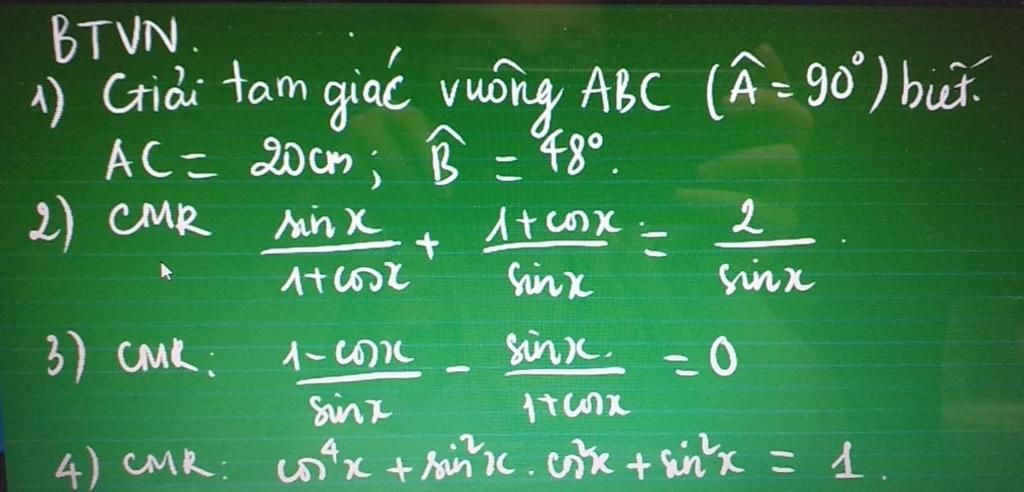 BTVN.
1) Giải tam giác vuông ABC (Â = 90°) biết.
AC = 20cm; B̂ = 48°.
2) CMR sinx/(1+cosx) + (1+cosx)/sinx = 2/sinx.
3) CMR: (1-cosx)/sinx - sinx/(1+cosx) = 0
4) CMR: cos⁴x + sin²x . cos²x + sin²x = 1.